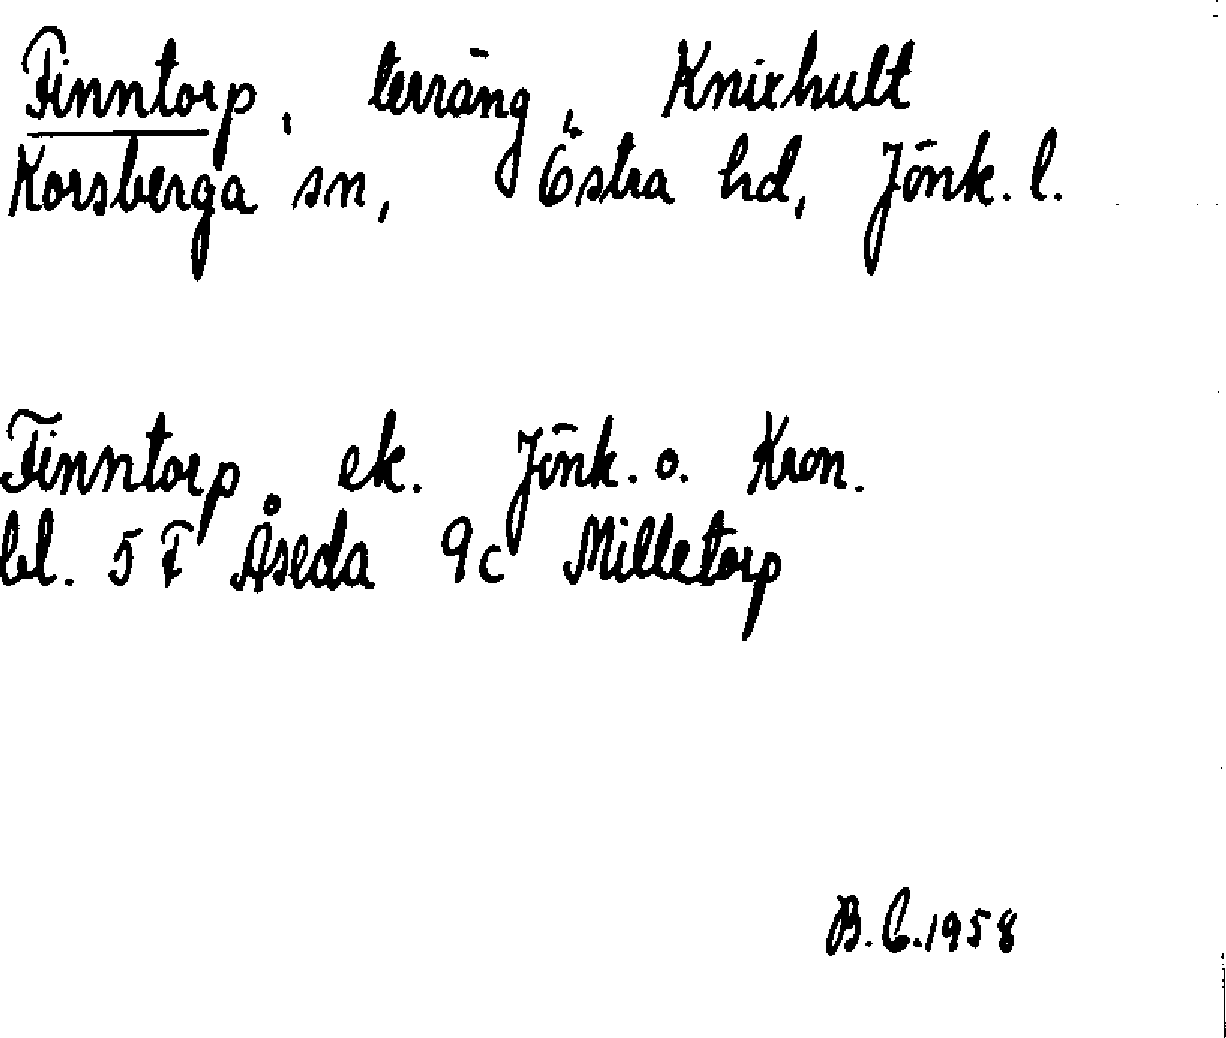 Finntorp, terräng, Knixhult
Korsberga sn, Östra hd, Jönk. l.
Finntorp ek. Jönk. o. Kron.
bl. 5 F Åseda 9c Milletorp
B. C. 1958